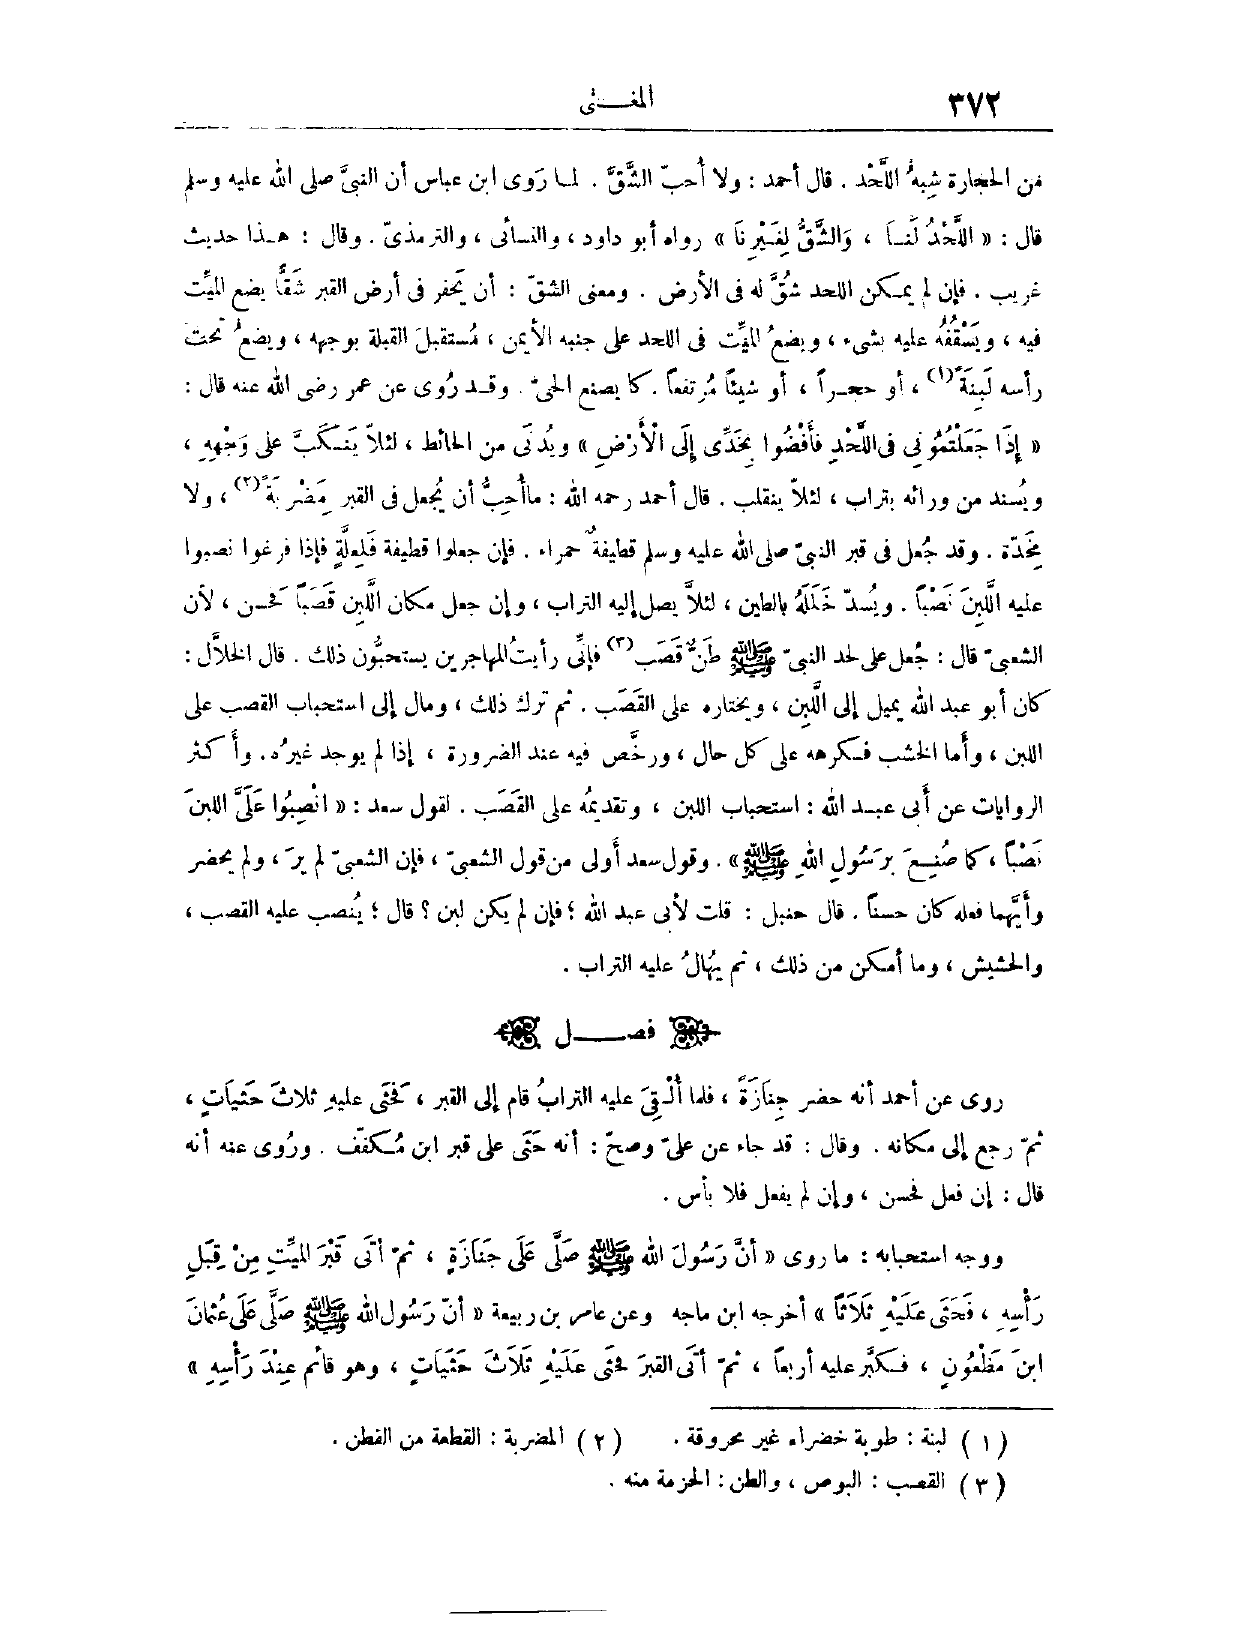 ٣٧٢
المغـــنى
من الحجارة شِبهُ اللَّحْد . قال أحمد : ولا أُحبّ الشَّقَّ . لمـا رَوى ابن عباس أن النبىَّ صلى الله عليه وسلم
قال : « اللَّحْدُ لَنـا ، وَالشَّقُّ لِغَـيْرِنَا » رواه أبو داود ، والنسائى ، والترمذىّ . وقال : هـذا حديث
غريب . فإن لم يمـكن اللحد شُقَّ له فى الأرض . ومعنى الشقّ : أن يَحفر فى أرض القبر شَقًّا يضع الميِّت
فيه ، ويَسْقُفُهُ عليه بشىء ، ويضعُ الميِّت فى اللحد على جنبه الأيمن ، مُستقبلَ القبلة بوجهه ، ويضعُ تحت
رأسه لَبِنَةً (١) ، أو حجـراً ، أو شيئاً مُرتفعاً . كما يصنع الحىّ . وقـد رُوى عن عمر رضى الله عنه قال :
« إِذَا جَعَلْتُمُونِى فى اللَّحْدِ فَأَفْضُوا بِخَدِّى إِلَى الْأَرْضِ » ويُدنَى من الحائط ، لئلاّ يَنـكَبَّ على وَجْهِهِ ،
ويُسند من ورائه بتراب ، لئلاّ ينقلب . قال أحمد رحمه الله : ما أُحِبُّ أن يُجعل فى القبر مَضْرَبَةً (٢) ، ولا
مِخَدّة . وقد جُعل فى قبر النبىّ صلى الله عليه وسلم قطيفةٌ حمراء . فإن جعلوا قطيفة فَلِعلَّةٍ فإذا فرغوا نصبوا
عليه اللَّبِنَ نَصْباً . ويُسدّ خَلَلَهُ بالطين ، لئلاَّ يصل إليه التراب ، وإن جعل مكان اللَّبِن قَصَباً فحسن ، لأن
الشعبىّ قال : جُعل على لحد النبىّ ﷺ طَنُّ قَصَب (٣) فإنِّى رأيتُ المهاجرين يستحبُّون ذلك . قال الخلاَّل :
كان أبو عبد الله يميل إلى اللَّبِن ، ويختاره على القَصَب . ثم ترك ذلك ، ومال إلى استحباب القصب على
اللبن ، وأما الخشب فـكرهه على كل حال ، ورخَّص فيه عند الضرورة ، إذا لم يوجد غيرُه . وأكثر
الروايات عن أبى عبـد الله : استحباب اللبن ، وتقديمُه على القَصَب . لقول سعد : « انْصِبُوا عَلَىَّ اللبِنَ
نَصْباً ، كما صُنِـعَ بِرَسُولِ اللهِ ﷺ » . وقول سعد أولى من قول الشعبىّ ، فإن الشعبىّ لم يرَ ، ولم يحضر
وأيَّهما فعله كان حسناً . قال حنبل : قلت لأبى عبد الله ؛ فإن لم يكن لبن ؟ قال ؛ يُنصب عليه القصب ،
والحشيش ، وما أمكن من ذلك ، ثم يُهالُ عليه التراب .
فصـــل
روى عن أحمد أنه حضر جِنَازَةً ، فلما أُلْـقِىَ عليه الترابُ قام إلى القبر ، فَحَثَى عليهِ ثلاثَ حَثَياتٍ ،
ثمّ رجع إلى مكانه . وقال : قد جاء عن علىّ وصحّ : أنه حَثَى على قبر ابن مُكَفّف . ورُوى عنه أنه
قال : إن فعل فحسن ، وإن لم يفعل فلا بأس .
ووجه استحبابه : ما روى « أنَّ رَسُولَ الله ﷺ صَلَّى عَلَى جَنَازَةٍ ، ثمّ أتَى قَبْرَ الميِّتِ مِنْ قِبَلِ
رَأْسِهِ ، فَحَثَى عَلَيْهِ ثَلَاثاً » أخرجه ابن ماجه وعن عامر بن ربيعة « أنّ رَسُول الله ﷺ صَلَّى عَلَى عُثمانَ
ابنَ مَظْعُونٍ ، فـكبَّر عليه أربعاً ، ثمّ أتَى القبرَ فحَثَى عَلَيْهِ ثَلَاثَ حَثَيَاتٍ ، وهو قائم عِنْدَ رَأْسِهِ »
( ١ ) لبنة : طوبة خضراء غير محروقة . ( ٢ ) المضربة : القطعة من القطن .
( ٣ ) القصب : البوص ، والطن : الحزمة منه .